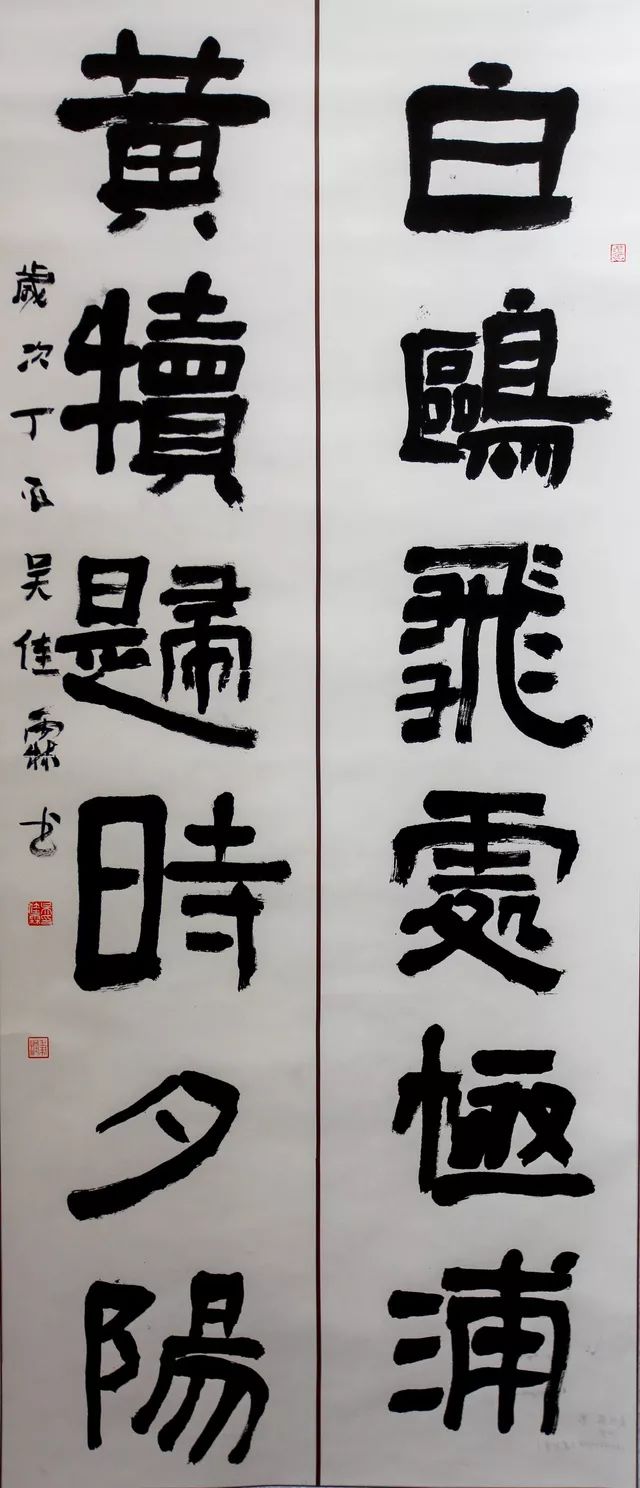 白鷗飛處極浦
黃犢歸時夕陽
歲次丁酉吴佳霖书